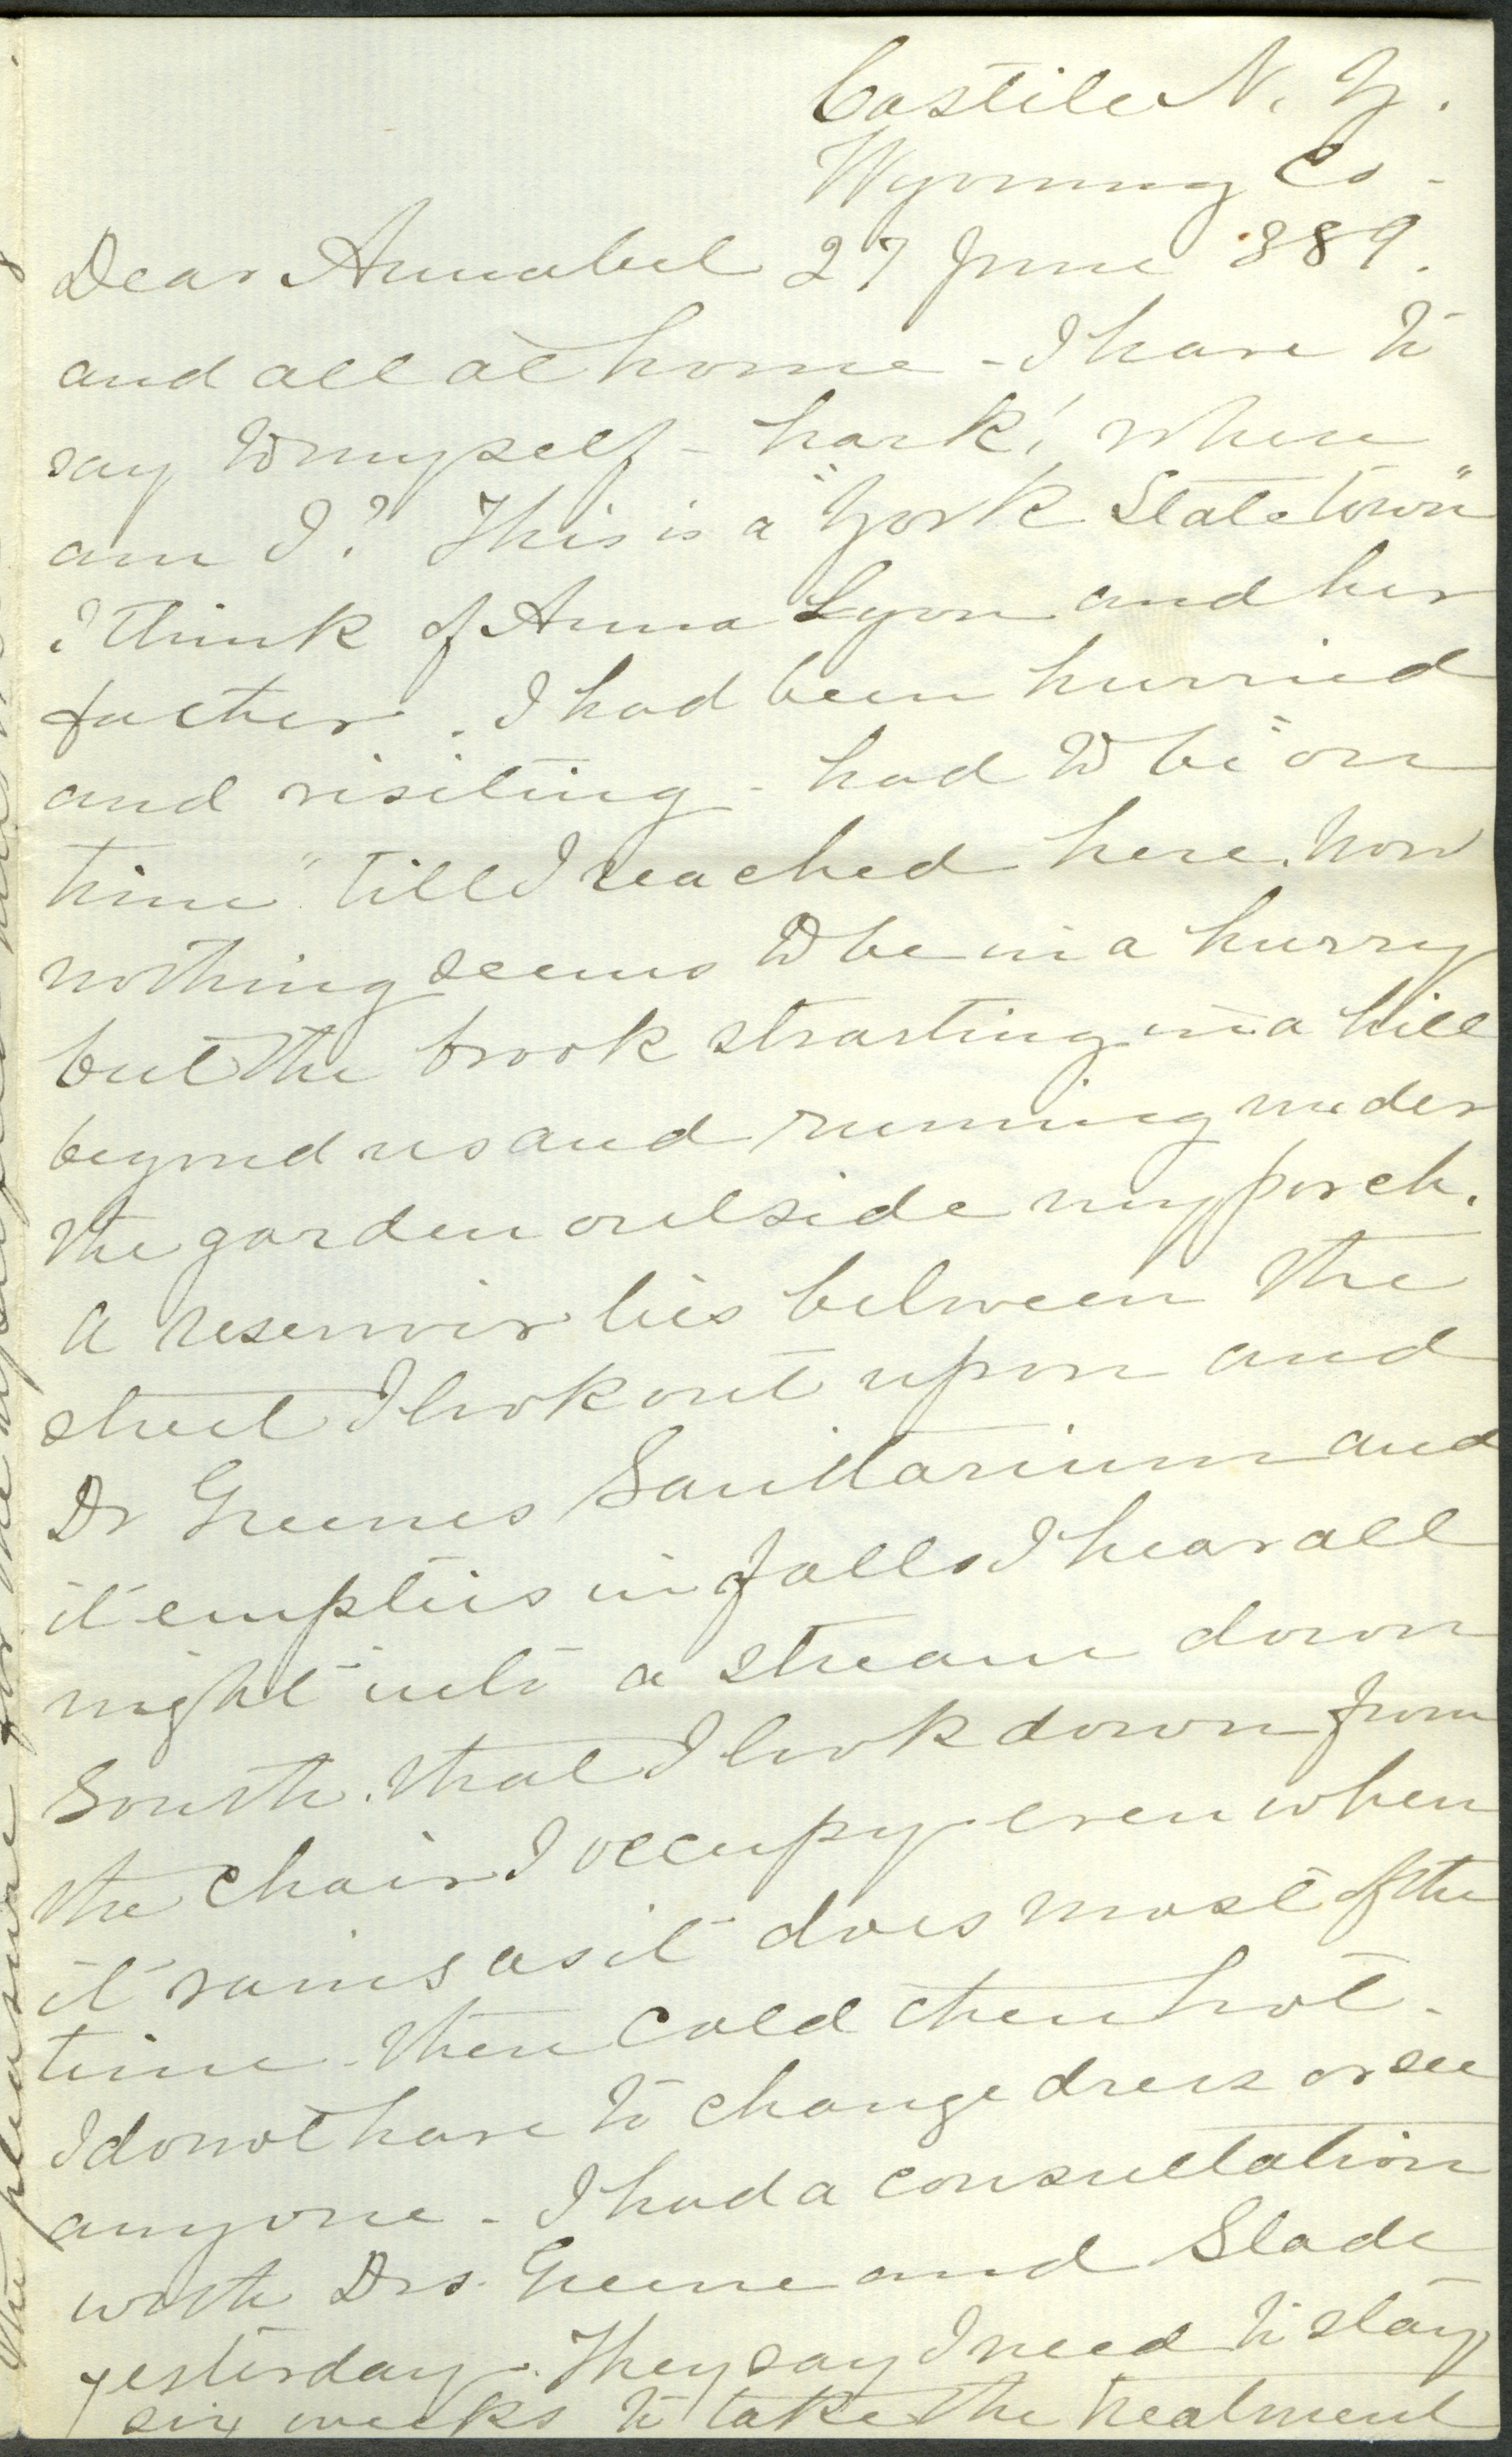 Castile N. Y.
Wyoming Co -
Dear Annabel 27 June '889.
and all at home - I have to
say to myself - hark! where
am I? This is a "York State town"
I think of Anna Lyon and her
father. I had been hurried
and visiting - had to be "on
time" till I reached here. Now
nothing seems to be in a hurry
but the brook starting in a hill
beyond us and running under
the garden outside my porch.
A reservoir lies between the
street I look out upon and
Dr Greenes Sanitarium and
it empties in falls I hear all
night into a stream down
South. that I look down from
the chair I occupy even when
it rains as it does most of the
time. then cold then hot -
I do not have to change dress or see
anyone - I had a consultation
with Drs. Greene and Slade
yesterday. They say I need to stay
six weeks to take the treatment
the pleasure